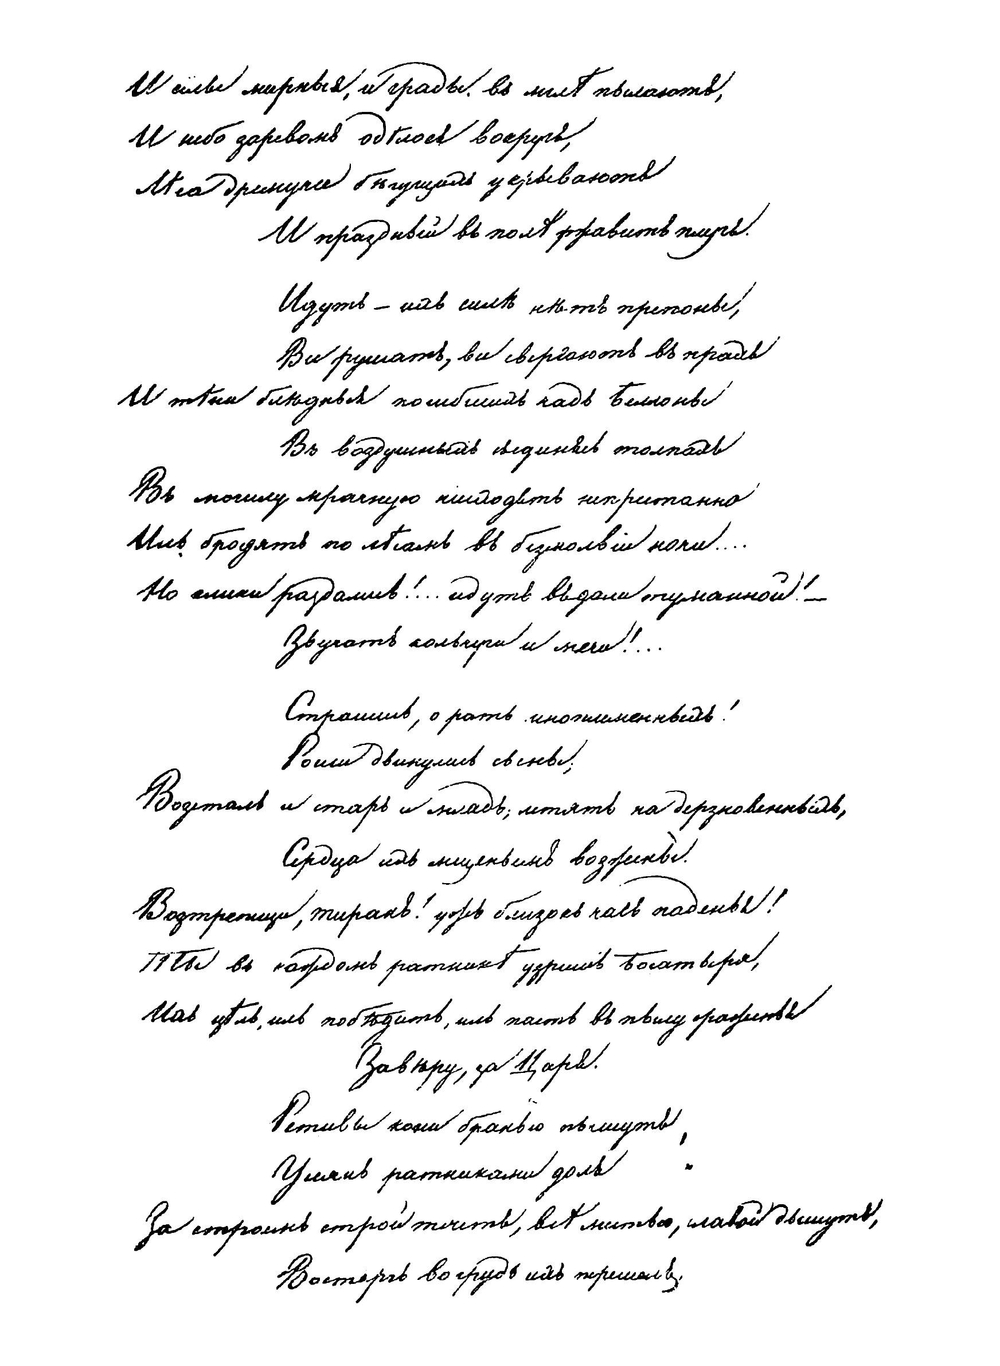 И селы мирныя, и грады въ мглѣ пылаютъ,
И небо заревомъ одѣлося вокругъ,
Лѣса дремучіе бѣгущихъ укрываютъ
И праздный въ полѣ ржавитъ плугъ.
Идутъ — ихъ силѣ нѣтъ препоны,
Все рушатъ, все свергаютъ въ прахъ
И тѣни блѣдныя погибшихъ чадъ Беллоны
Въ воздушныхъ съединясь толпахъ
Въ могилу мрачную нисходятъ непристанно
Иль бродятъ по лѣсамъ въ безмолвіи ночи....
Но клики раздались!... идутъ въ дали туманной! —
Звучатъ кольчуги и мечи!...
Страшись, о рать иноплеменныхъ!
Россіи двинулись сыны;
Возсталъ и старъ и младъ; летятъ на дерзновенныхъ,
Сердца ихъ мщеньемъ возжены.
Вострепещи, тиранъ! ужъ близокъ часъ паденья!
Ты въ каждомъ ратникѣ узришь богатыря,
Ихъ цѣль, иль побѣдить, иль пасть въ пылу сраженья
За вѣру, за Царя.
Ретивы кони бранью пышутъ,
Усѣянъ ратниками долъ
За строемъ строй течетъ, всѣ местью, славой дышутъ,
Восторгъ во грудь ихъ перешелъ.